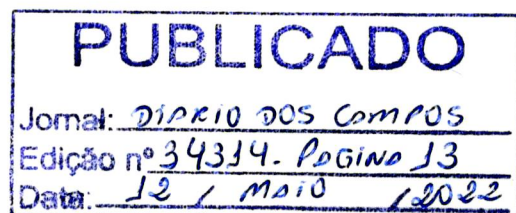 PUBLICADO
Jornal: DIARIO DOS CAMPOS
Edição nº 34314. PAGINA 13
Data: 12 / MAIO / 2022